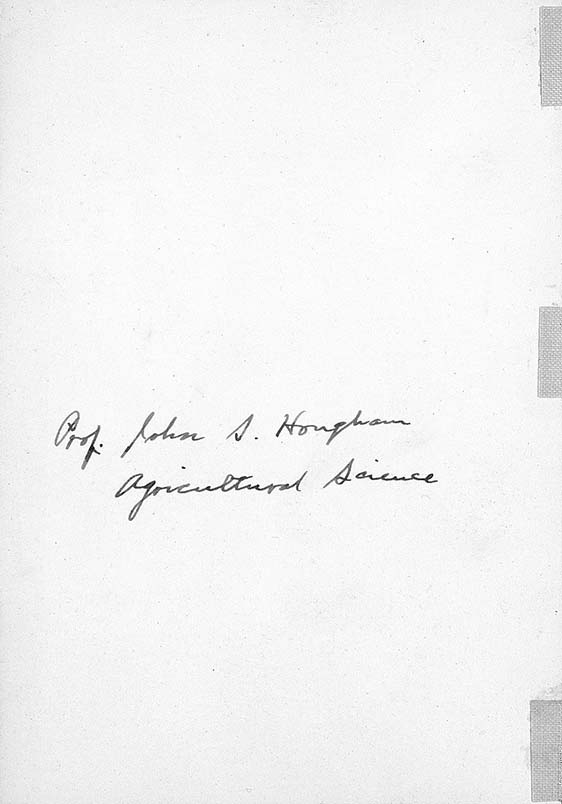 Prof. John S. Hougham
Agricultural Science